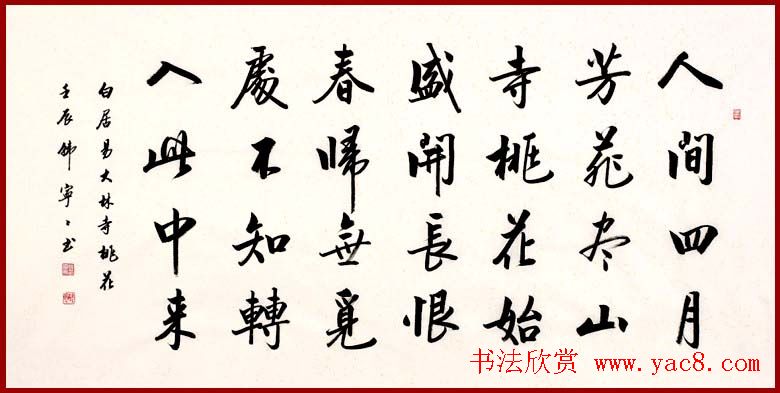 人間四月
芳菲尽山
寺桃花始
盛開長恨
春歸無覓
處不知轉
入此中来
白居易大林寺桃花
壬辰韩寧〻书
书法欣赏 www.yac8.com